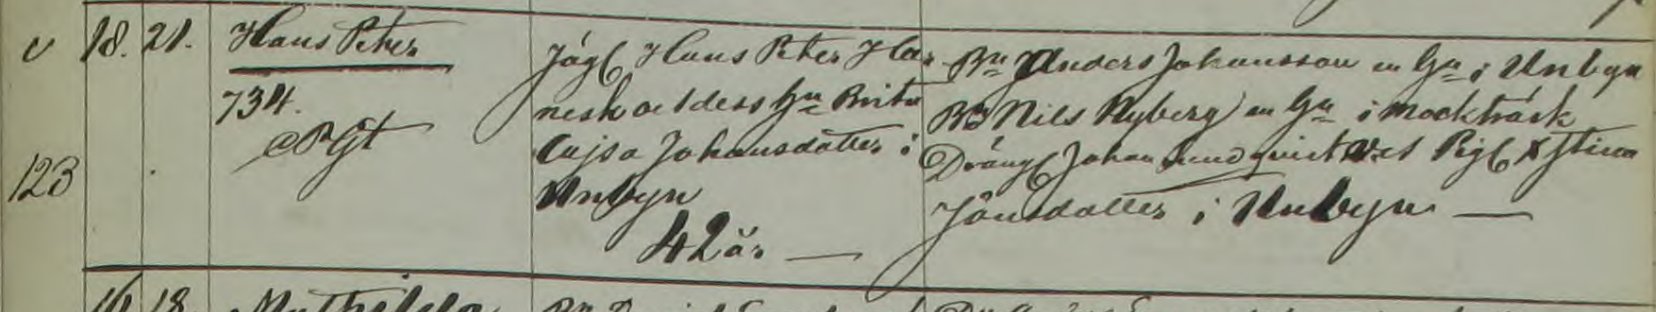 v 18. 21. Hans Peter
734.
123
Jägl Hans Peter Har-
nesk och dess hu Brita
Cajsa Johansdotter i
Unbyn
42 år. —
Bn Anders Johansson m hu i Unbyn
Bn Nils Nyberg m hu i Mockträsk
Drängl Johan Lundqvist et Pigl Stina
Jönsdotter i Unbyn —
16 18 Mathilda